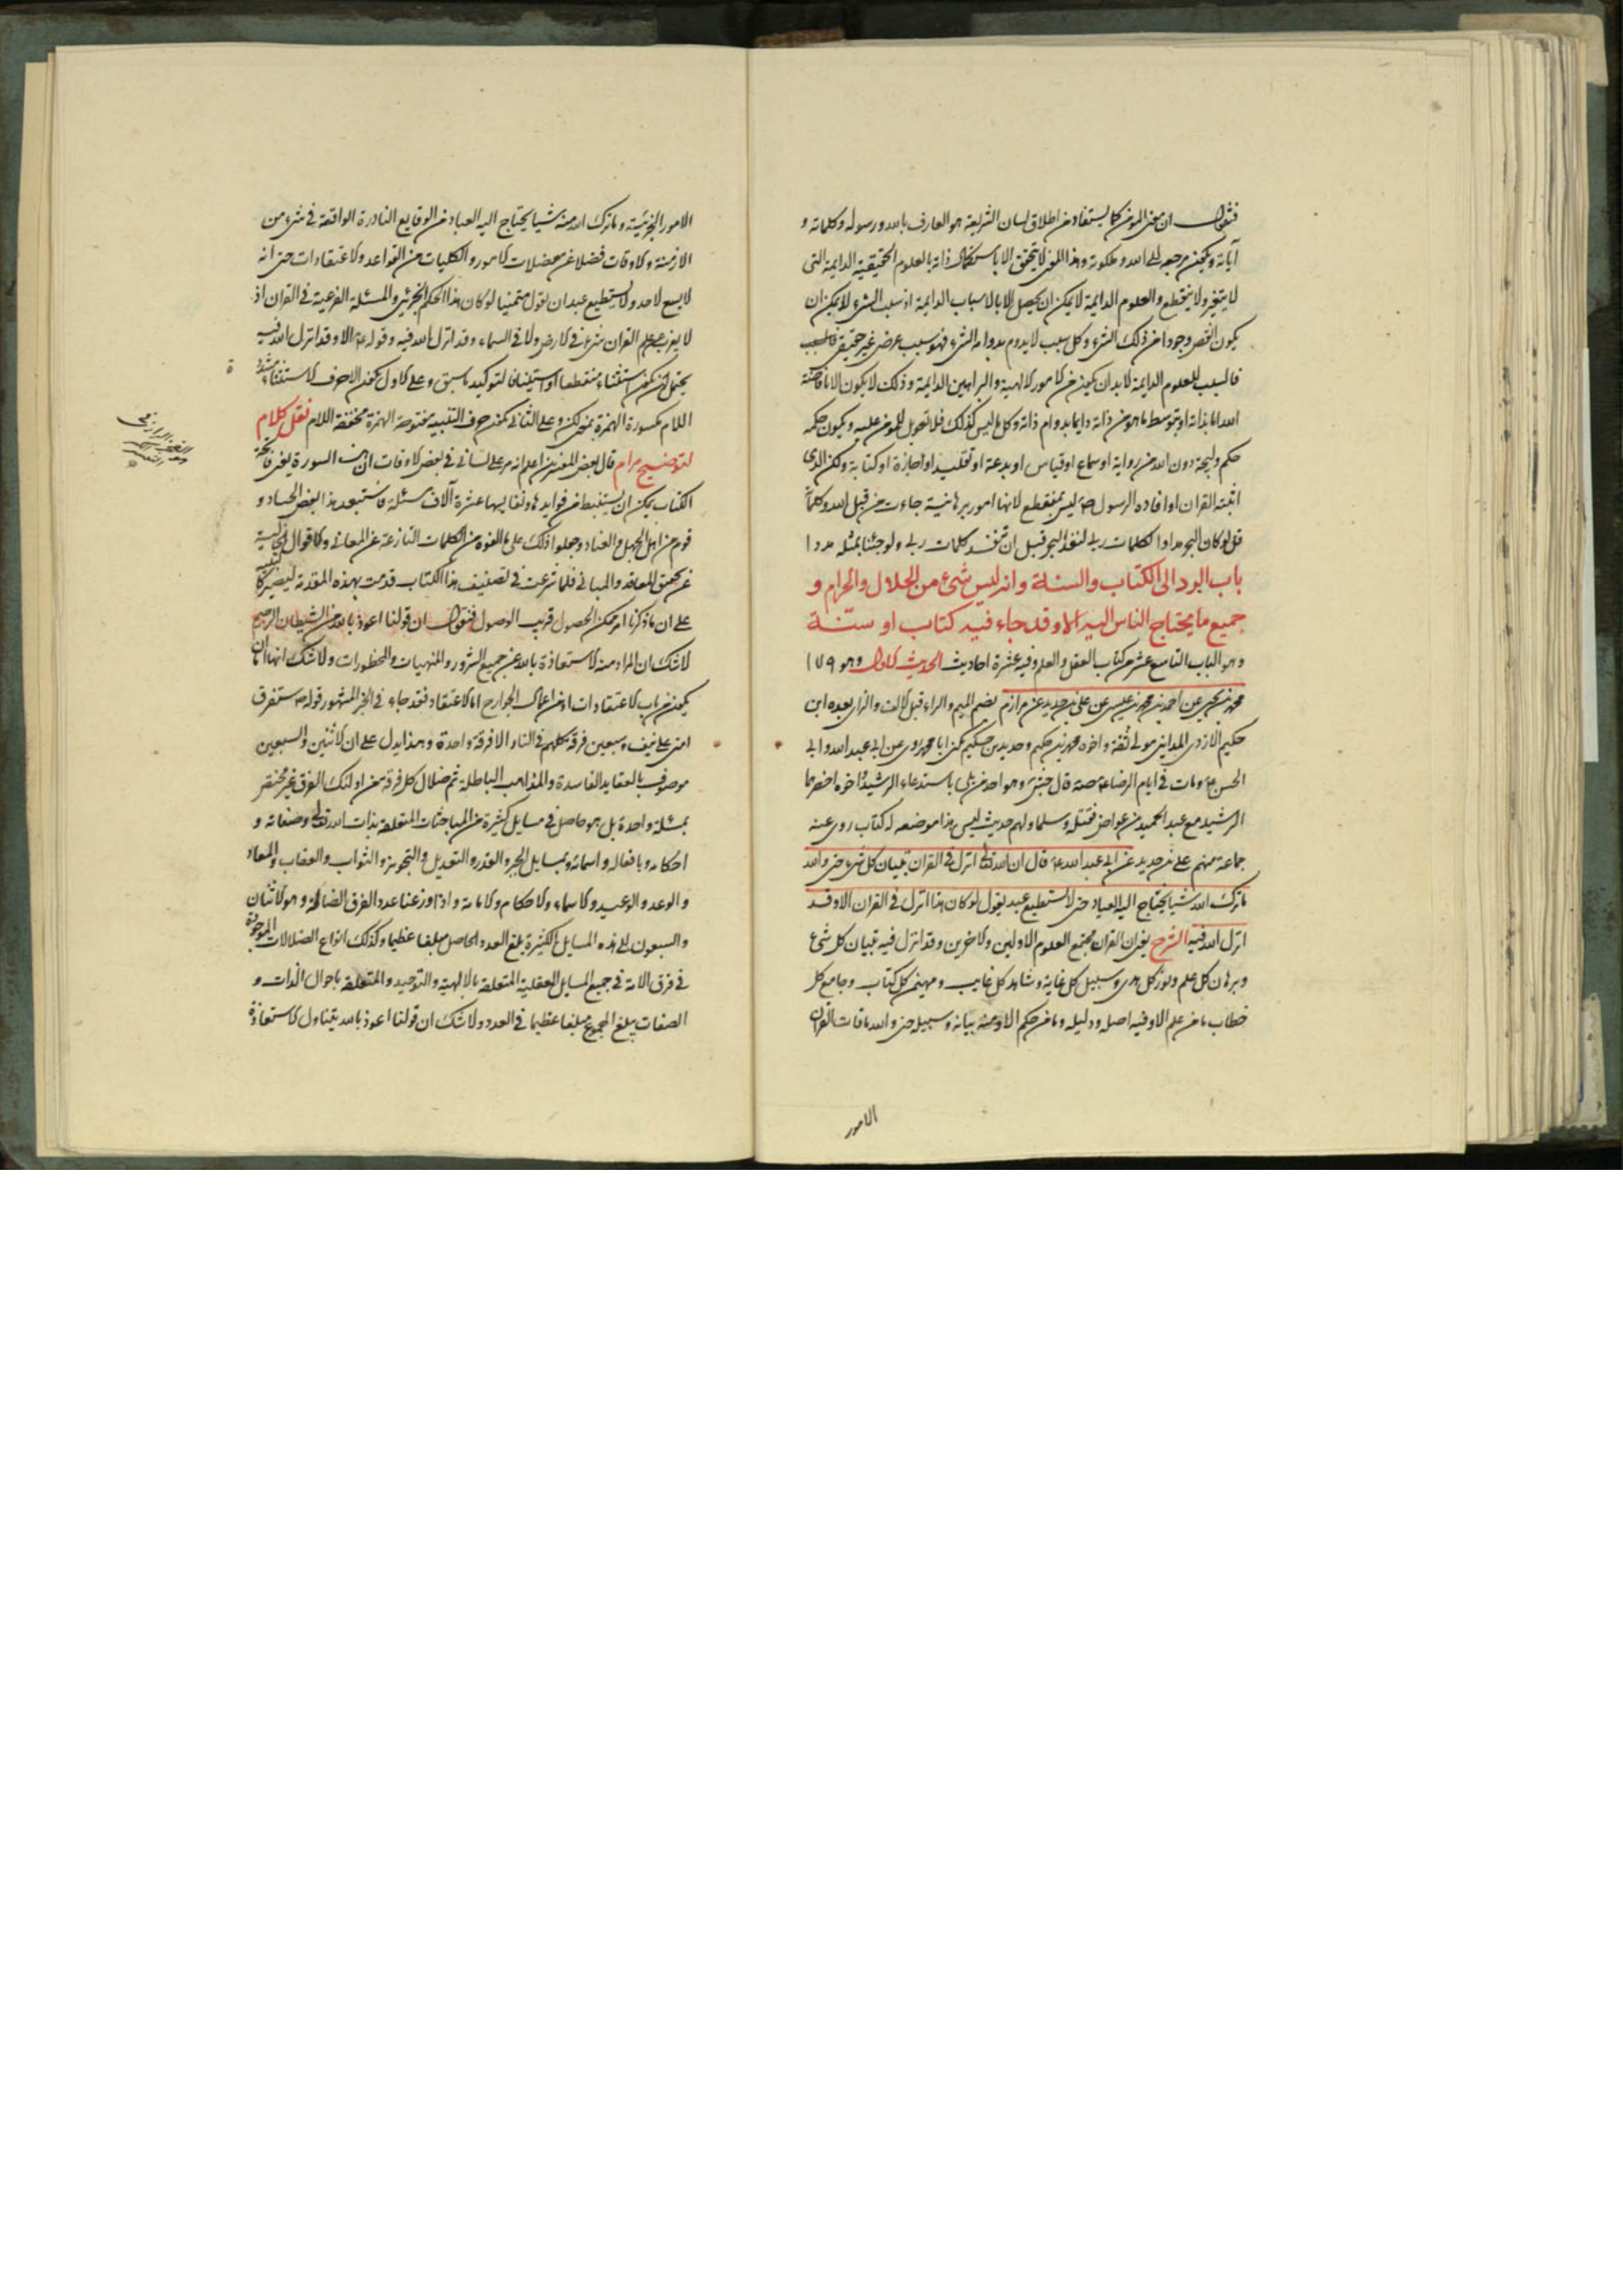 فنقول ان معنى المؤمن كما يستفاد من اطلاق لسان الشريعة هو العارف بالله ورسوله وكلماته و
آياته ويكون مرجعه الى الله وملكوته وهذا المعنى لا يتحقق الا باستكمال ذاته بالعلوم الحقيقية الدايمة التى
لا يتغير ولا ينقطع والعلوم الدايمة لا يمكن ان يحصل الا بالاسباب الدايمة اذ سبب الشىء لا يمكن ان
يكون انقص وجودا من ذلك الشىء وكل سبب لا يدوم بدوامه الشىء فهو سبب عرضى غير حقيقى
فالسبب للعلوم الدايمة لا بد ان يكون من الامور الالهية والبراهين الدايمة وذلك لا يكون الا بافاضة
الله اما بذاته او بتوسط ما هو من ذاته دايما بدوام ذاته وكل ما ليس كذلك فلا تعويل للمؤمن عليه ويكون حكمه
حكم وليجة دون الله من رواية او سماع او قياس او بدعة او تقليد او اجازة او كتابة ولكن الذى
اثبته القران او افاده الرسول ص ليس بمنقطع لانها امور برهانية جاءت من قبل الله وكلماته
قل لو كان البحر مدادا لكلمات ربى لنفد البحر قبل ان تنفد كلمات ربى ولو جئنا بمثله مددا
باب الرد الى الكتاب والسنة وانه ليس شىء من الحلال والحرام و
جميع ما يحتاج الناس اليه الا وقد جاء فيه كتاب او سنّة
وهو الباب التاسع عشر من كتاب العقل والعلم وفيه عشرة احاديث الحديث الاول وهو ١٧٩
محمد بن يحيى عن احمد بن محمد بن عيسى عن على بن حديد عن مرازم بضم الميم والراء قبل الالف والزاى بعده ابن
حكيم الازدى المداينى مولى ثقة واخوه محمد بن حكيم وحديد بن حكيم يكنى ابا محمد روى عن ابى عبد الله وابى
الحسن ع ومات فى ايام الرضا ع صه قال جش وهو احد من بلى باستدعاء الرشيد واخوه احضرهما
الرشيد مع عبد الحميد بن عواض فقتله وسلما ولهم حديث ليس هذا موضعه له كتاب روى عنه
جماعة منهم على بن حديد عن ابى عبد الله ع قال ان الله تعالى انزل فى القران تبيان كل شىء حتى والله
ما ترك الله شيئا يحتاج اليه العباد حتى لا يستطيع عبد يقول لو كان هذا انزل فى القران الا وقد
انزل الله فيه الشرح يعنى ان القران مجتمع العلوم الاولين والاخرين وقد انزل فيه تبيان كل شىء
وبرهان كل علم ونور كل هدى وسبيل كل غاية وشاهد كل غايب ومهيمن كل كتاب وجامع كل
خطاب ما من علم الا وفيه اصله ودليله وما من حكم الا ومنه بيانه وسبيله حتى والله ما فات القران
الامور
الامور الجزئية وما ترك الله منه شيئا يحتاج اليه العباد من الوقايع النادرة الواقعة فى شىء من
الازمنة والاوقات فضلا عن معضلات الامور والكليات من القواعد والاعتقادات حتى انه
لا يسع لاحد ولا يستطيع عبد ان يقول متمنيا لو كان هذا الحكم الجزئى والمسئلة الفرعية فى القران اذ
لا يعزب عن علم القران شىء فى الارض ولا فى السماء وقد انزل الله فيه وقوله ع الا وقد انزل الله فيه
يحتمل ان يكون استثناء منقطعا او استينافا لتوكيد ما سبق وعلى الاول يكون الا حرف الاستثناء مشددة
اللام مكسورة الهمزة بمعنى لكن وعلى الثانى يكون حرف التنبيه مفتوحة الهمزة مخففة اللام نقل كلام
لتوضيح مرام قال بعض المفسرين اعلم انه مر على لسانى فى بعض الاوقات ان هذه السورة يعنى فاتحة
الكتاب يمكن ان يستنبط من فوايدها ونفايسها عشرة آلاف مسئلة فاستبعد هذا بعض الحساد و
قوم من اهل الجهل والعناد وحملوا ذلك على ما الفوه من الكلمات النازعة عن المعانى والاقوال الخالية
عن تحقيق المعاقد والمبانى فلما شرعت فى تصنيف هذا الكتاب قدمت بهذه المقدمة ليصير كالتنبيه
على ان ما ذكرنا امر ممكن الحصول قريب الوصول فنقول ان قولنا اعوذ بالله من الشيطان الرجيم
لا شك ان المراد منه الاستعاذة بالله من جميع الشرور والمنهيات والمحظورات ولا شك انها اما ان
يكون من باب الاعتقادات او من اعمال الجوارح اما الاعتقاد فقد جاء فى الخبر المشهور قوله ص ستفرق
امتى على نيف وسبعين فرقة كلهم فى النار الا فرقة واحدة وهذا يدل على ان الاثنين والسبعين
موصوف بالعقايد الفاسدة والمذاهب الباطلة ثم ضلال كل فرقة من اولئك الفرق غير مختصر
بمسئلة واحدة بل هو حاصل فى مسايل كثيرة من المباحثات المتعلقة بذات الله تعالى وصفاته و
احكامه وبافعاله واسمائه وبمسايل الجبر والقدر والتعديل والتجويز والثواب والعقاب والمعاد
والوعد والوعيد والاسماء والاحكام والامامة واذا وزعنا عدد الفرق الضالة وهو الاثنان
والسبعون على هذه المسايل الكثيرة بلغ العدد الحاصل مبلغا عظيما وكذلك انواع الضلالات الموجودة
فى فرق الامة فى جميع المسايل العقلية المتعلقة بالالهية والتوحيد والمتعلقة باحوال الذات و
الصفات يبلغ المجموع مبلغا عظيما فى العدد ولا شك ان قولنا اعوذ بالله يتناول الاستعاذة